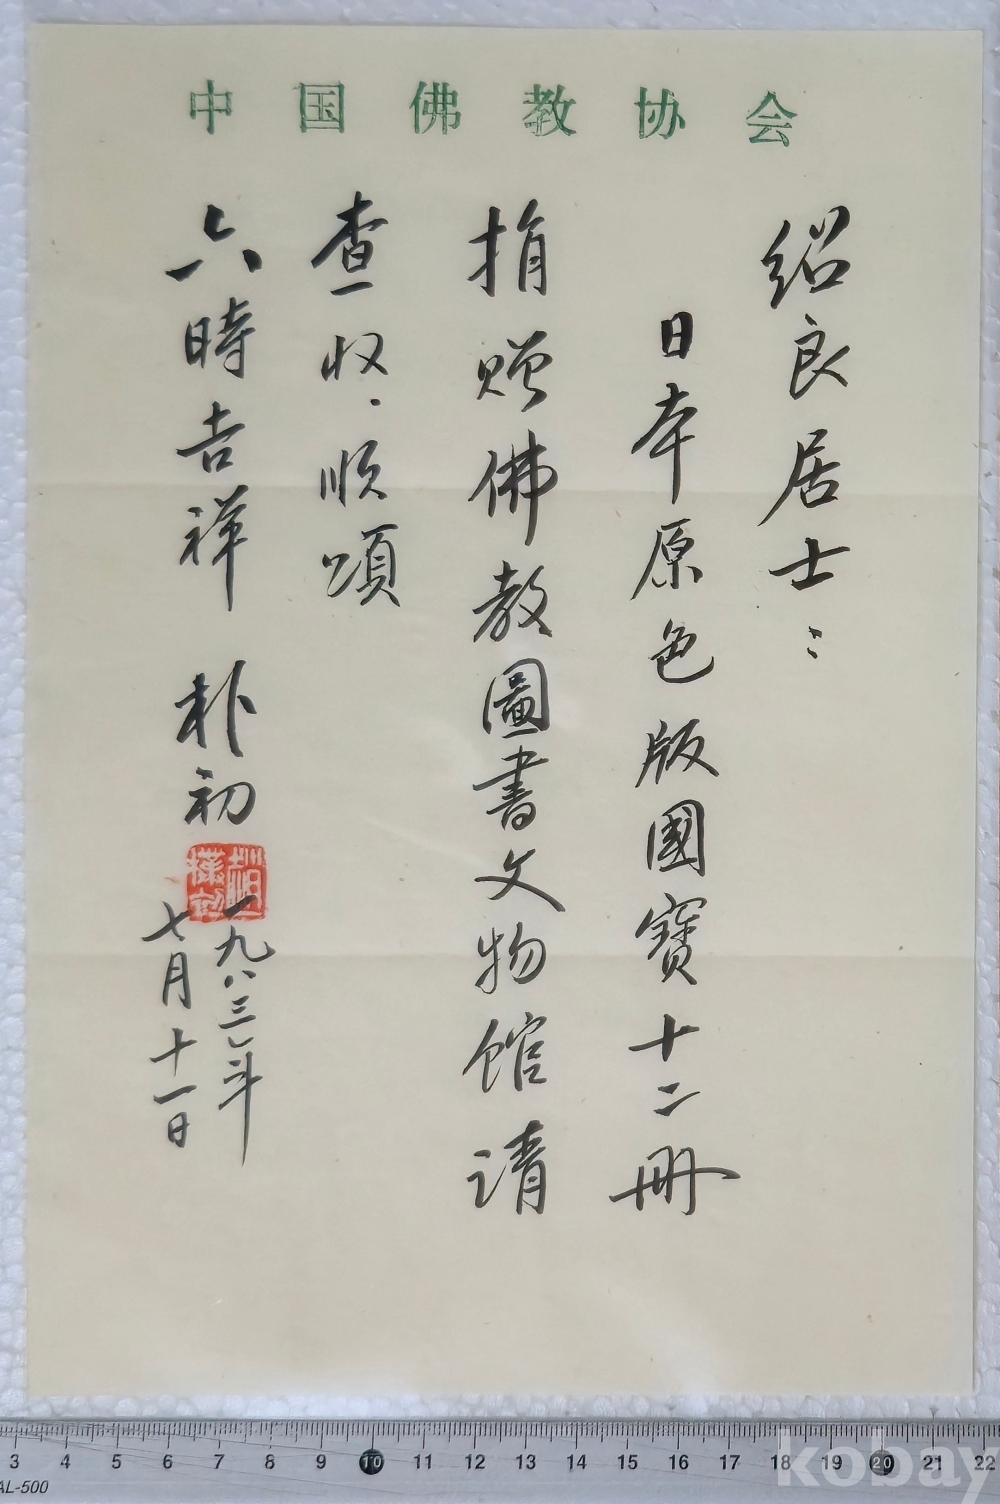 中国佛教协会
绍良居士：
日本原色版國寶十二冊
捐赠佛教圖書文物館请
查收．順頌
六時吉祥 朴初
趙樸初
一九八三年
七月十一日
3 4 5 6 7 8 9 10 11 12 13 14 15 16 17 18 19 20 21 22
AL-500
kobay